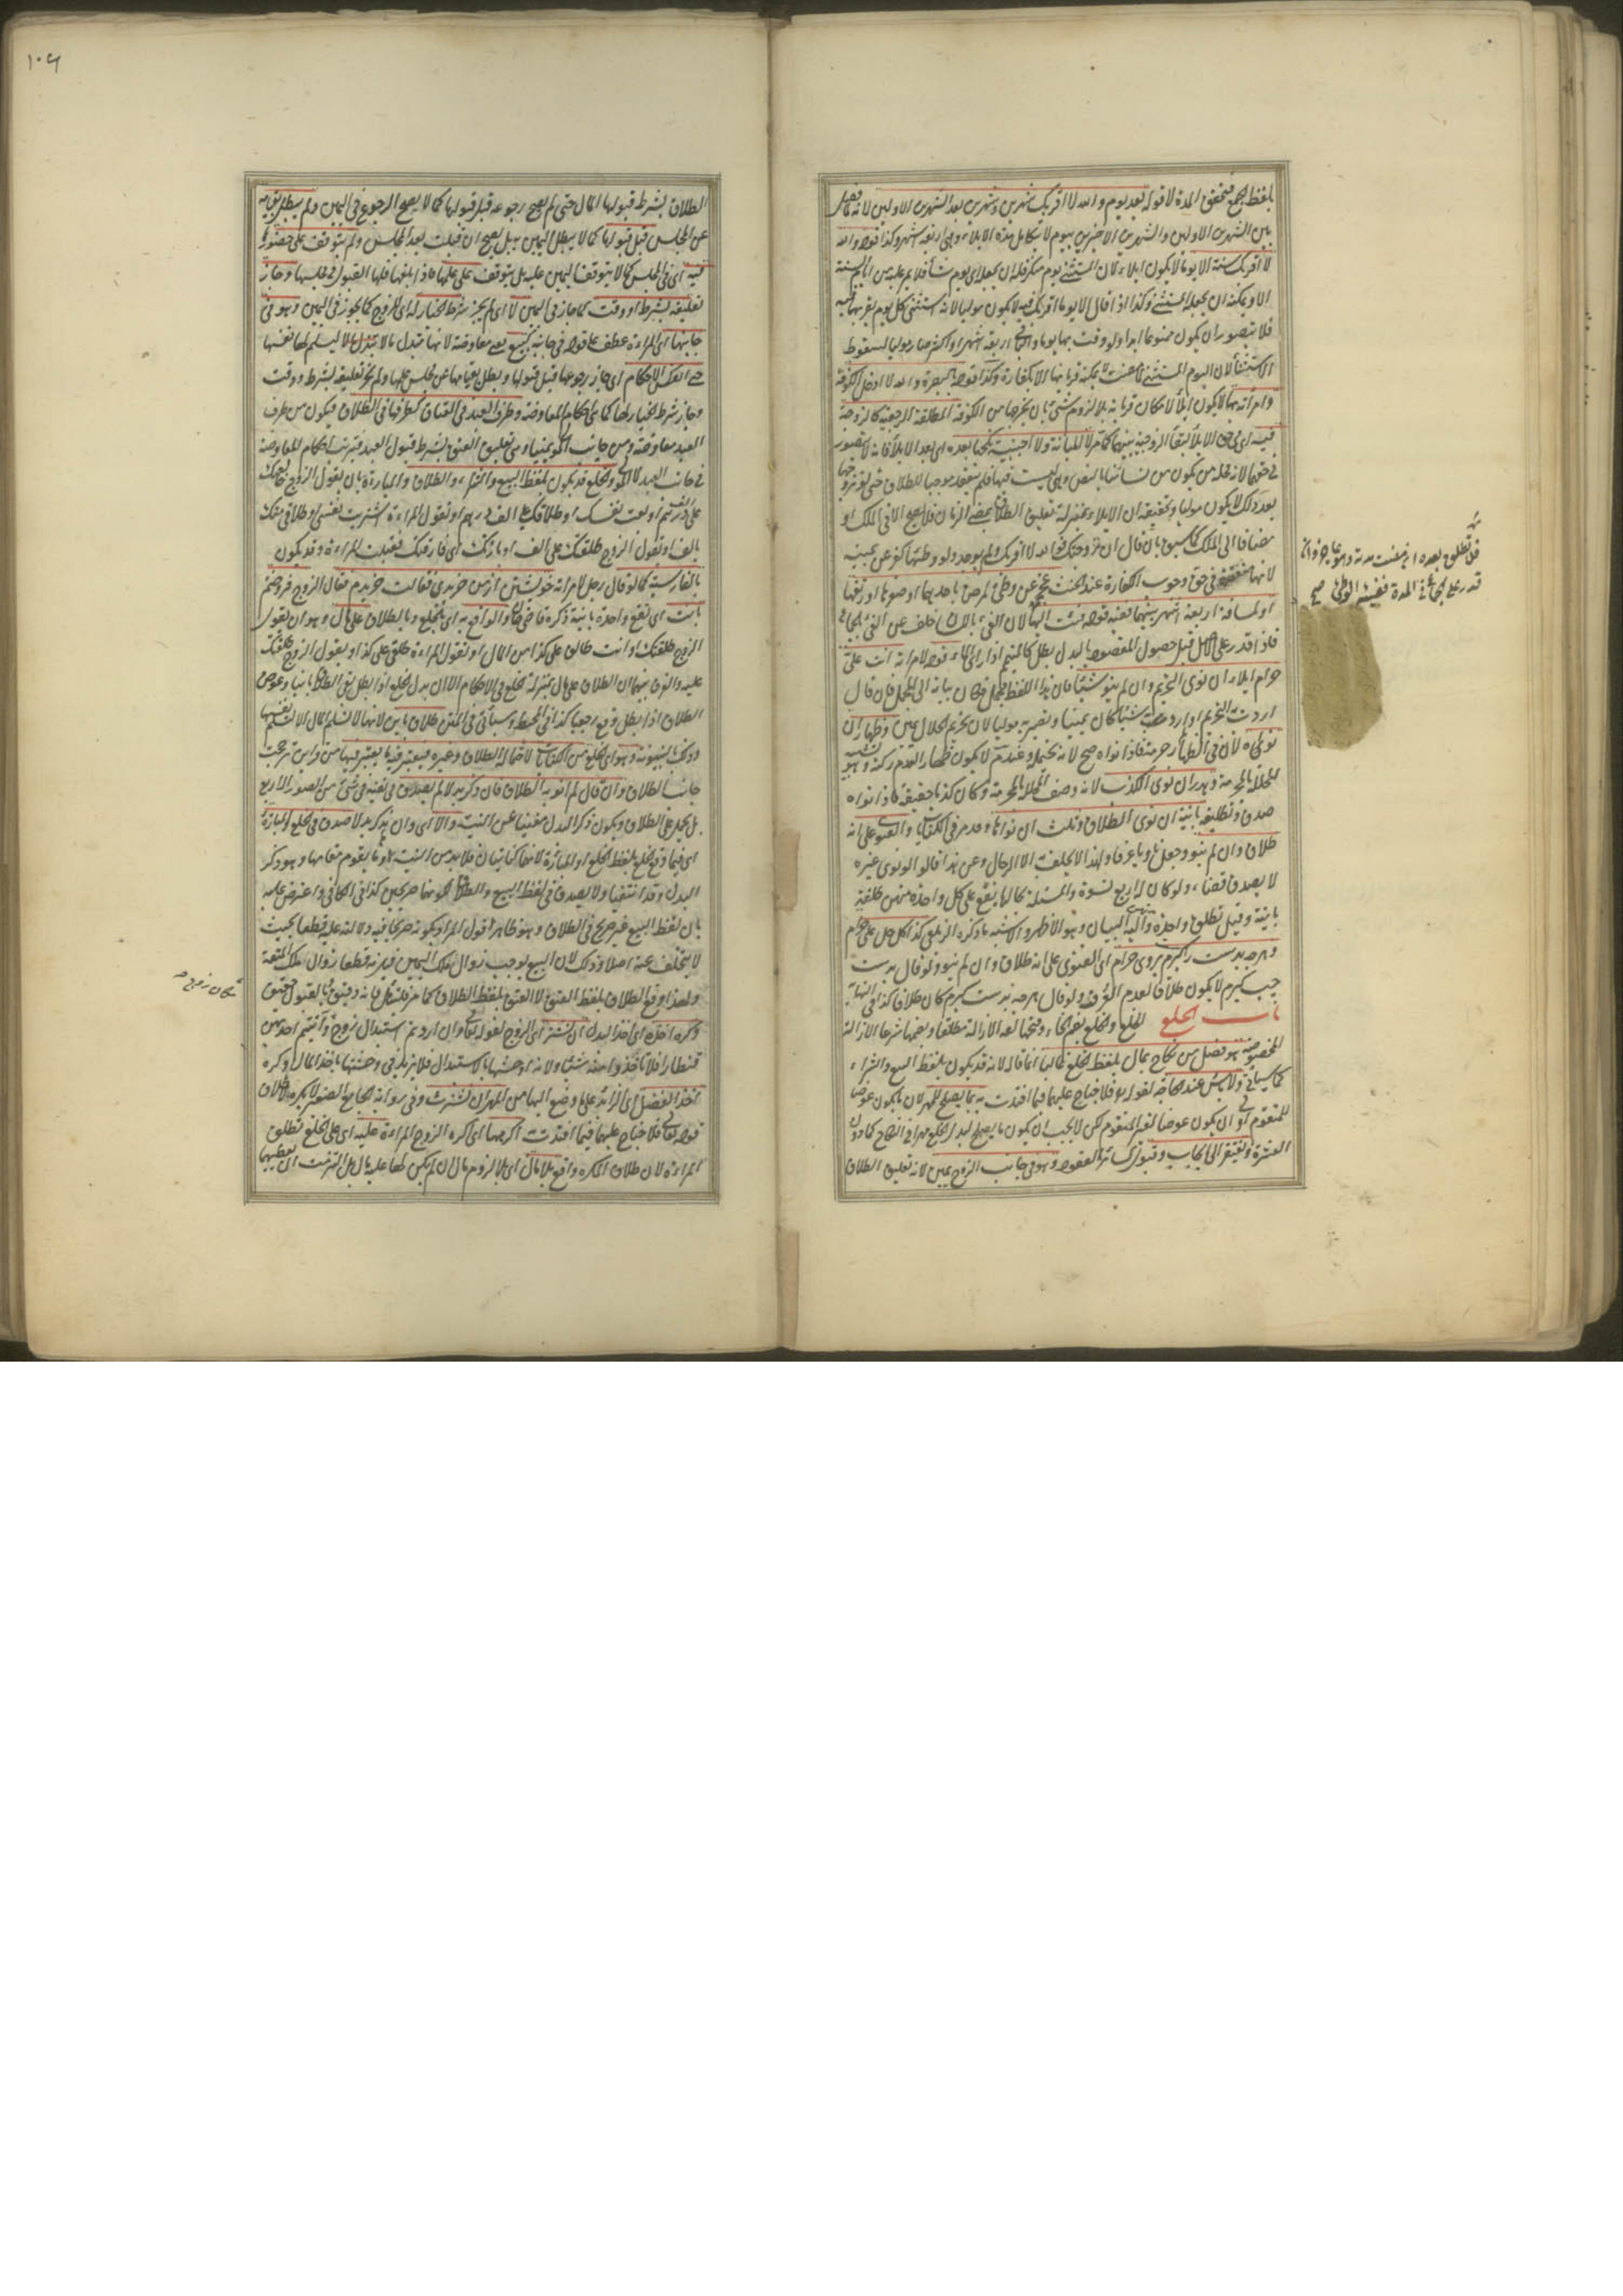 بلفظ الجمع فتحقق المدة لا قوله بعد يوم والله لا اقربك شهرين وشهرين بعد الشهرين الاولين لانه
بين الشهرين الاولين والشهرين الاخرين بيوم لا يتكامل مدة الايلاء وهى اربعة اشهر وكذا قوله والله
لا اقربك سنة الا يوما لا يكون ايلاء لان المستثنى يوم منكر فله ان يجعله اى يوم شاء فلا يمر عليه من ايام السنة
الا ويمكنه ان يجعله المستثنى وكذا اذا قال الا يوما اقربك فيه لا يكون موليا لانه استثنى كل يوم يقربها فيه
فلا يتصور ان يكون ممنوعا ابدا ولو وقت بها يوما وبقى اربعة اشهر او اكثر صار موليا لسقوط
الاستثناء لان اليوم المستثنى يمكنه قربانها الا بكفارة وكذا قوله بالبصرة والله لا ادخل الكوفة
وامرأته بها لا يكون ايلاء لامكان قربانه بلا لزوم شئ بان يخرجها من الكوفة المطلقة الرجعية كالزوجة
فيه اى فى حق الايلاء لبقاء الزوجية بينهما كما مر لا المبانة ولا اجنبية نكحها بعده اى بعد الايلاء فانه لا يتصور
فى حقها لان محله من تكون من نسائنا بالنص وهى ليست منها فلم ينعقد موجبا للطلاق حتى لو تزوجها
بعد ذلك لا يكون موليا وتحقيقه ان الايلاء بمنزلة تعليق الطلاق بمضى الزمان فلا يصح الا فى الملك او
مضافا الى الملك كما سبق بان قال ان تزوجتك فوالله لا اقربك ولم يوجد ولو وطئها كفر عن يمينه
لانها منعقدة فى حق وجوب الكفارة عند الحنث عجز عن وطئ لمرض باحدهما او صغرها او رتقها
او لمسافة اربعة اشهر بينهما ففيئه قوله فئت اليها لان الفئ باللسان خلف عن الفئ بالجماع
فاذا قدر على الاصل قبل حصول المقصود بالبدل بطل كالمتيمم اذا راى الماء قوله لامرأته انت على
حرام ايلاء ان نوى التحريم وان لم ينو شيئا فان هذا اللفظ مجمل فكان بيانه الى المجمل فان قال
اردت التحريم او لم ارد به شيئا كان يمينا ويصير به موليا لان تحريم الحلال يمين وظهار ان
نواه لان فى الظهار حرمة فاذا نواه صح لانه يحتمله وعند م لا يكون ظهارا لعدم ركنه وهو تشبيه
المحللة بالمحرمة وهدر ان نوى الكذب لانه وصف المحللة بالمحرمة وكان كذبا حقيقة فاذا نواه
صدق وتطليقة باينة ان نوى الطلاق وثلث ان نواها وقد مر فى الكنايات والفتوى على انه
طلاق وان لم ينو وجعل ناويا عرفا ولهذا لا يحلف الا الرجال وعن هذا قالوا لو نوى غيره
لا يصدق قضاء ولو كان له اربع نسوة والمسئلة بحالها يقع على كل واحدة منهن طلقة
باينة وقيل تطلق واحدة واليه البيان وهو الاظهر والاشبه ذكره الزيلعى كذا كل حل على حرام
وهرچه بدست راست گيرم بروى حرام اى الفتوى على انه طلاق وان لم ينو ولو قال بدست
چپ گيرم لا يكون طلاقا لعدم العرف ولو قال هرچه بدست گيرم كان طلاقا كذا فى النهاية
باب الخلع الخلع والخلع بضم الخاء وفتحها لغة الازالة مطلقا وبضمها شرعا الازالة
المخصوصة هو فصل من نكاح بمال بلفظ الخلع غالبا انما قال لانه قد يكون بلفظ البيع والشراء
كما سياتى ولا باس عند الحاجة لقوله تعالى فلا جناح عليهما فيما افتدت به بما يصلح للمهر لان ما يكون عوضا
للمتقوم اولى ان يكون عوضا لغير المتقوم لكن لا يجب ان يكون ما يصلح لبدل الخلع مهرا فى النكاح كما دون
العشرة ويفتقر الى ايجاب وقبول كسائر العقود وهو فى جانب الزوج يمين لانه تعليق الطلاق
فلا تطلق بعده اى مضت مدته وهو عاجز وان
قدر على الجماع فى المدة ففيئه الوطئ صح
١٠٦
الطلاق بشرط قبولها المال حتى لم يصح رجوعه قبل قبولها كما لا يصح الرجوع فى اليمين ولم يبطل بقيامه
عن المجلس قبل قبولها كما لا يبطل اليمين به بل يصح ان قبلت بعد المجلس ولم يتوقف على حضورها
فيه اى فى المجلس كما لا يتوقف اليمين عليه بل يتوقف على علمها فاذا بلغها فلها القبول فى مجلسها وجاز
تعليقه بشرط او وقت كما جاز فى اليمين لا اى لم يجز شرط الخيار له اى للزوج كما لا يجوز فى اليمين وهو فى
جانبها اى المرأة عطف على قوله فى جانبه كبيع يعنى معاوضة لانها تبذل مالا ليسلم لها نفسها
حتى انعكس الاحكام اى جاز رجوعها قبل قبوله وبطل بقيامها عن مجلس علمها ولم يجز تعليقه بشرط ووقت
وجاز شرط الخيار لها كما هى احكام المعاوضة وطرف العبد فى العتاق كطرفها فى الطلاق فيكون من طرف
العبد معاوضة ومن جانب المولى يمينا وهى تعليق العتق بشرط قبول العبد فترتب احكام المعاوضة
فى جانب العبد لا المولى والخلع قد يكون بلفظ البيع والشراء والطلاق والمباراة بان يقول الزوج خالعتك
على الف درهم او بعت نفسك او طلاقك على الف درهم او تقول المرأة اشتريت نفسى او طلاقى منك
بالف او يقول الزوج طلقتك على الف او بارئتك اى فارقتك فقبلت المرأة وقد يكون
بالفارسية كما لو قال رجل لامرأته خويشتن از من خريدى فقالت خريدم فقال الزوج فروختم
بانت اى تقع واحدة باينة ذكره قاضى خان والواقع به اى بالخلع وبالطلاق على مال وهو ان يقول
الزوج طلقتك او انت طالق على كذا من المال او تقول المرأة طلقنى على كذا ويقول الزوج طلقتك
عليه والفرق بينهما ان الطلاق على مال بمنزلة الخلع فى الاحكام الا ان بدل الخلع اذا بطل بقى الطلاق باينا وعوض
الطلاق اذا بطل وقع رجعيا كذا فى المحيط وسيأتى فى المتن طلاق باين لانها لا تسلم المال الا لتسلم نفسها
وذلك بالبينونة وهو اى الخلع من الكنايات لاحتماله الطلاق وغيره فيعتبر فيه ما يعتبر فيها من قراين ترجح
جانب الطلاق وان قال لم انو به الطلاق فان ذكر بدلا لم يصدق فى نفيه فى شئ من الصور الاربع
بل يحمل على الطلاق ويكون ذكر البدل مغنيا عن النية والا اى وان لم يذكر بدلا صدق فى الخلع والمباراة
اى فيما وقع الخلع بلفظ الخلع او المباراة لانهما كنايتان فلا بد من النية او ما يقوم مقامها وهو ذكر
البدل وقد انتفيا ولا يصدق فى لفظ البيع والطلاق لكونهما صريحين كذا فى الكافى واعترض عليه
بان لفظ البيع غير صريح فى الطلاق وهو ظاهر اقول المراد بكونه صريحا فيه دلالته عليه قطعا بحيث
لا يتخلف عنه اصلا وذلك لان البيع يوجب زوال ملك اليمين فيلزمه قطعا زوال ملك المتعة
ولهذا وقع الطلاق بلفظ العتق لا العتق بلفظ الطلاق كما مر فليتأمل فانه دقيق وبالقبول حقيق
وكره اخذه اى اخذ البدل ان نشز اى الزوج لقوله تعالى وان اردتم استبدال زوج وآتيتم احديهن
قنطارا فلا تأخذوا منه شيئا ولانه اوحشها بالاستبدال فلا يزيد فى وحشتها باخذ المال وكره
اخذ الفضل اى الزائد على ما وضع اليها من المهر ان نشزت وفى رواية الجامع الصغير لا يكره لاطلاق
قوله تعالى فلا جناح عليهما فيما افتدت اكرهها اى اكره الزوج المرأة عليه اى على الخلع تطلق
المرأة لان طلاق المكره واقع بلا مال اى بلا لزوم مال ان لم يكن لها عليه مال بل التزمت ان تعطيها
مكان زوج صح